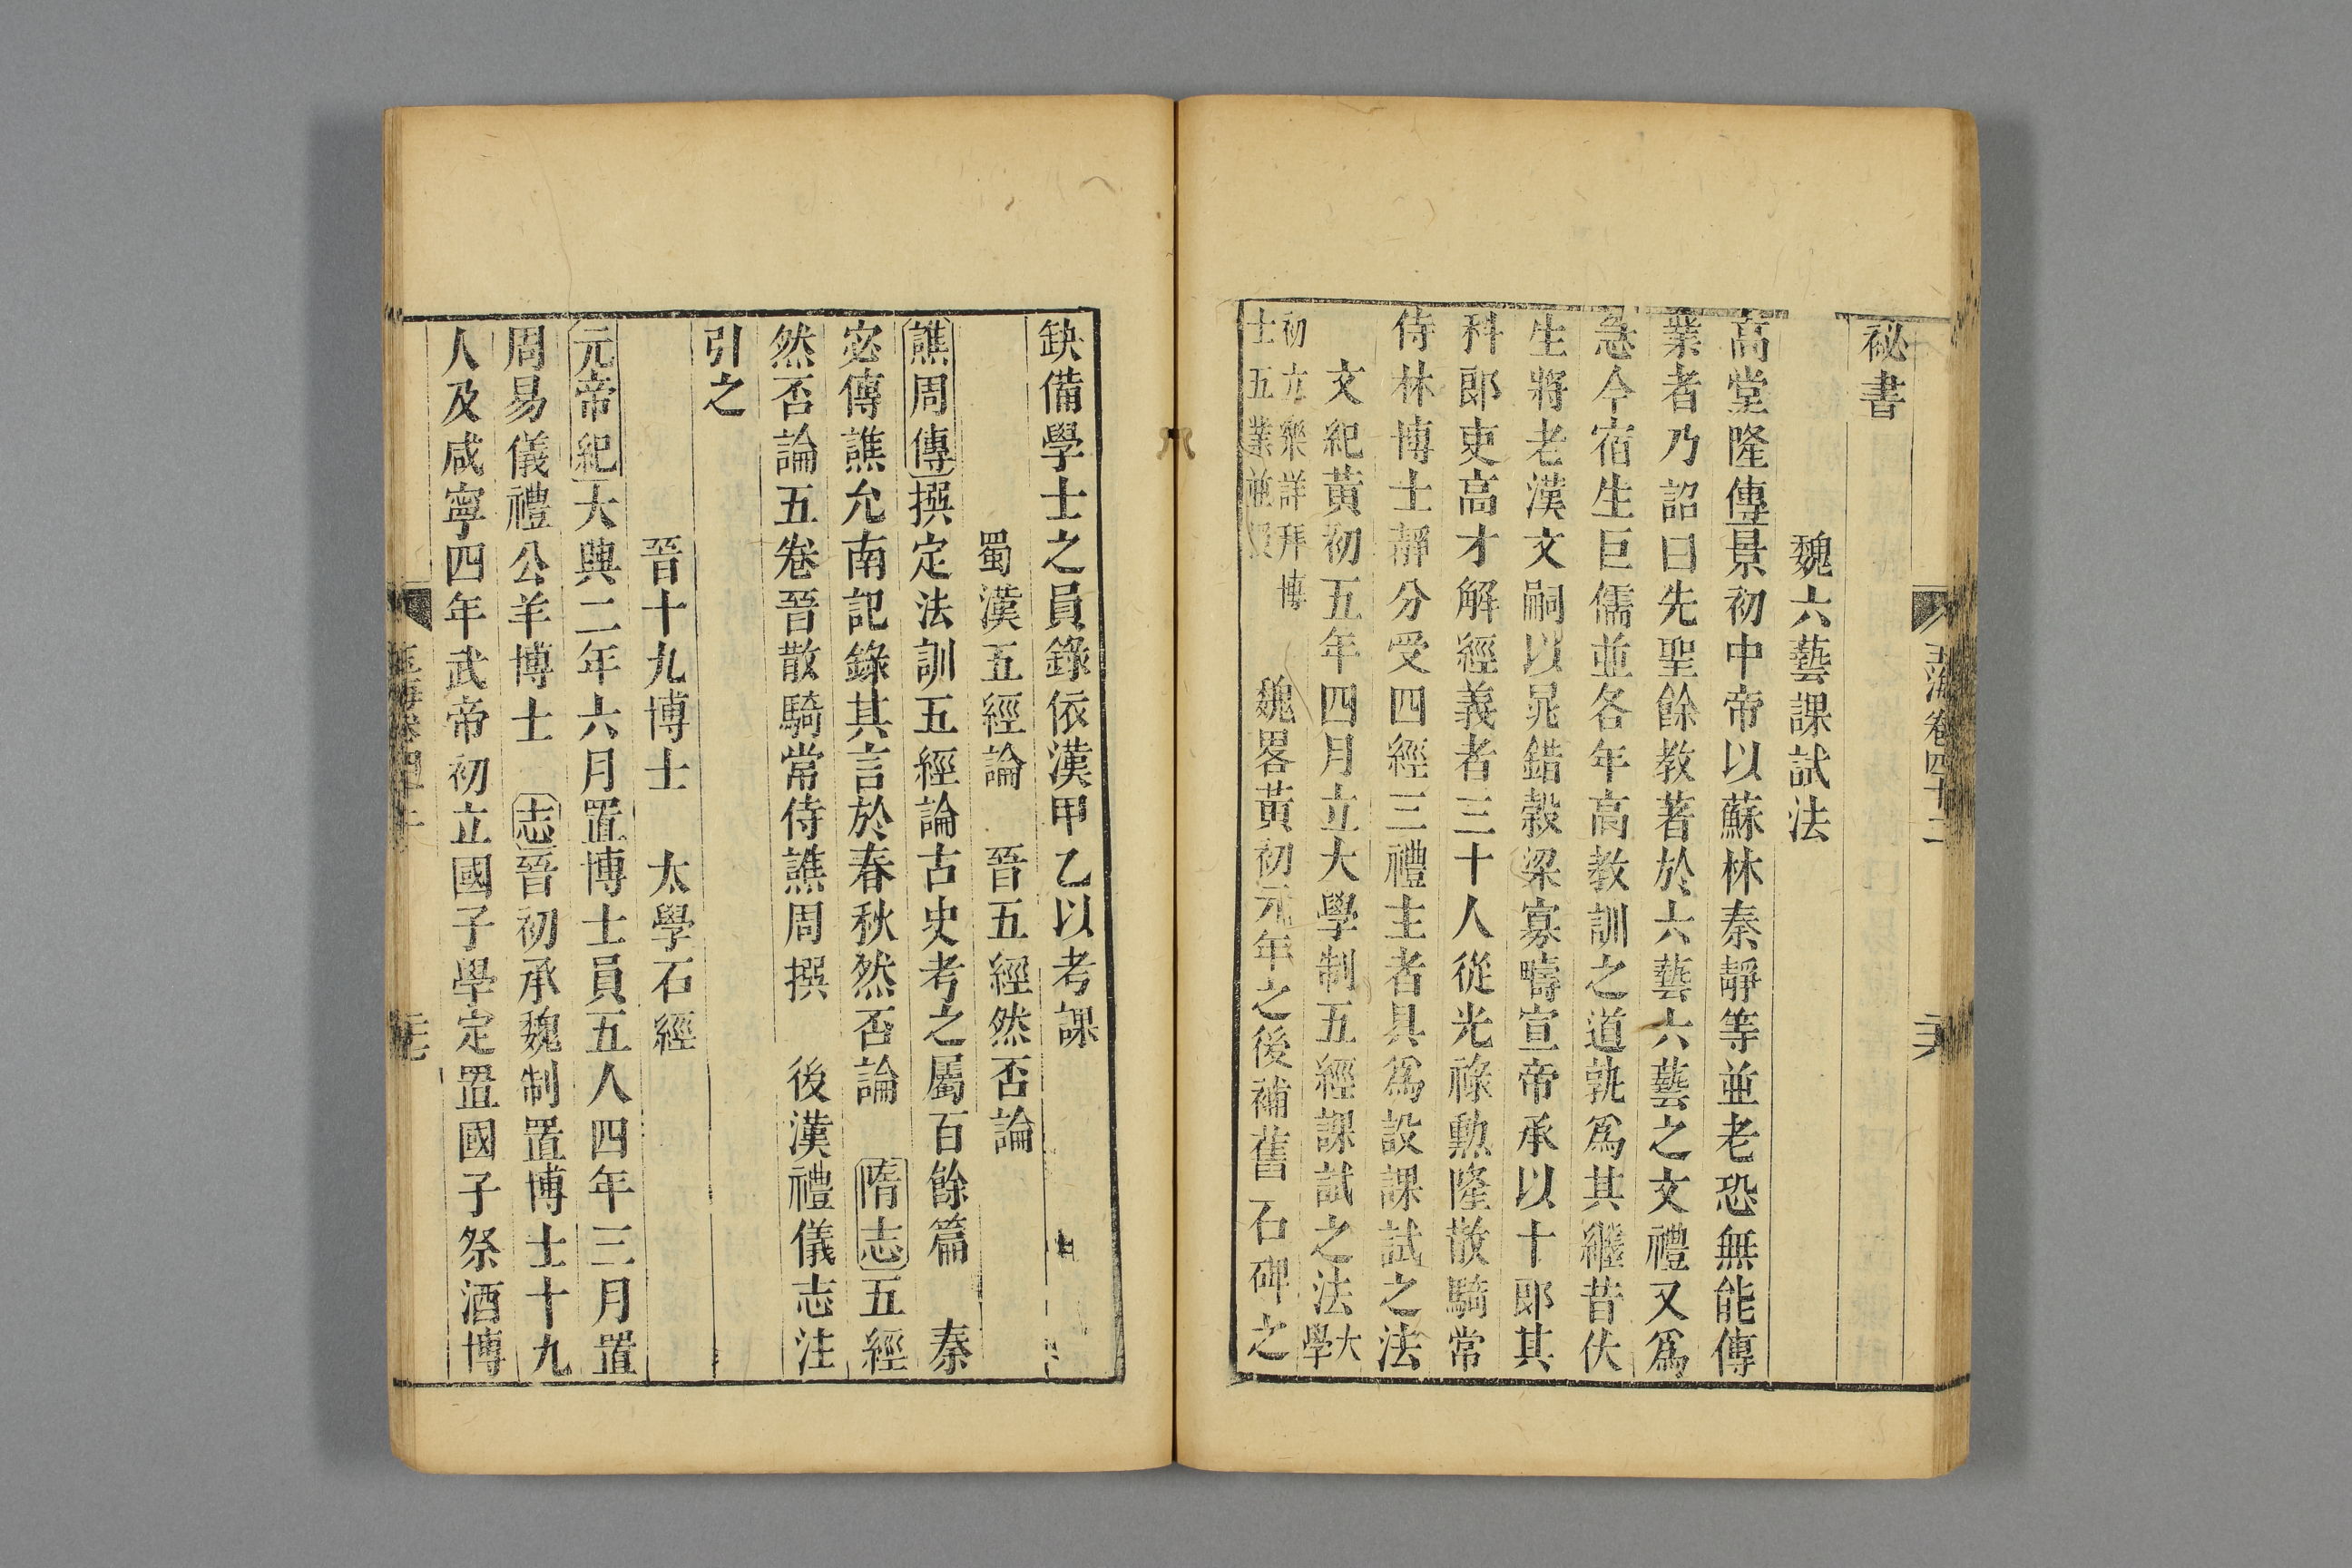 玉海卷四十二
二十六
祕書
魏六藝課試法
高堂隆傳景初中帝以蘇林秦靜等並老恐無能傳
業者乃詔曰先聖餘教著於六藝六藝之文禮又爲
急今宿生巨儒並各年高教訓之道孰爲其繼昔伏
生將老漢文嗣以晁錯榖梁寡疇宣帝承以十郞其
科郞吏高才解經義者三十人從光祿勲隆散騎常
侍林博士靜分受四經三禮主者具爲設課試之法
文紀黃初五年四月立大學制五經課試之法大學
初立樂詳拜博士五業並授 魏畧黃初元年之後補舊石碑之
缺備學士之員錄依漢甲乙以考課
蜀漢五經論 晉五經然否論
譙周傳撰定法訓五經論古史考之屬百餘篇 秦
宓傳譙允南記錄其言於春秋然否論 隋志五經
然否論五卷晉散騎常侍譙周撰 後漢禮儀志注
引之
晉十九博士 太學石經
元帝紀大興二年六月置博士員五人四年三月置
周易儀禮公羊博士 志晉初承魏制置博士十九
人及咸寧四年武帝初立國子學定置國子祭酒博